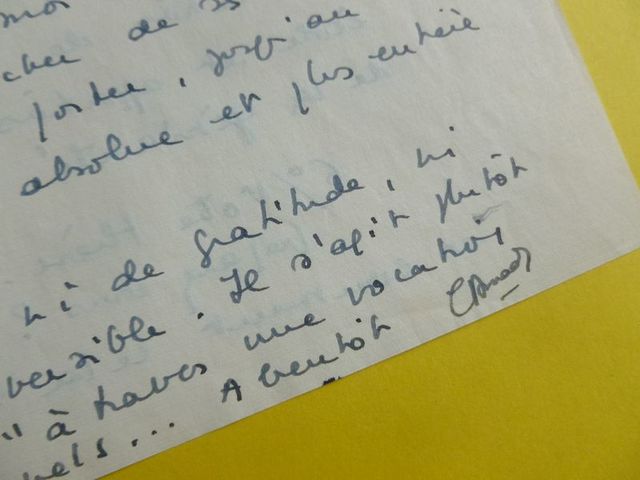 de
poster, jusqu'au
absolue et plus entière
ni de gratitude, ni
versible. Il s'agit plutôt
" à travers une vocation
nels... A bientôt